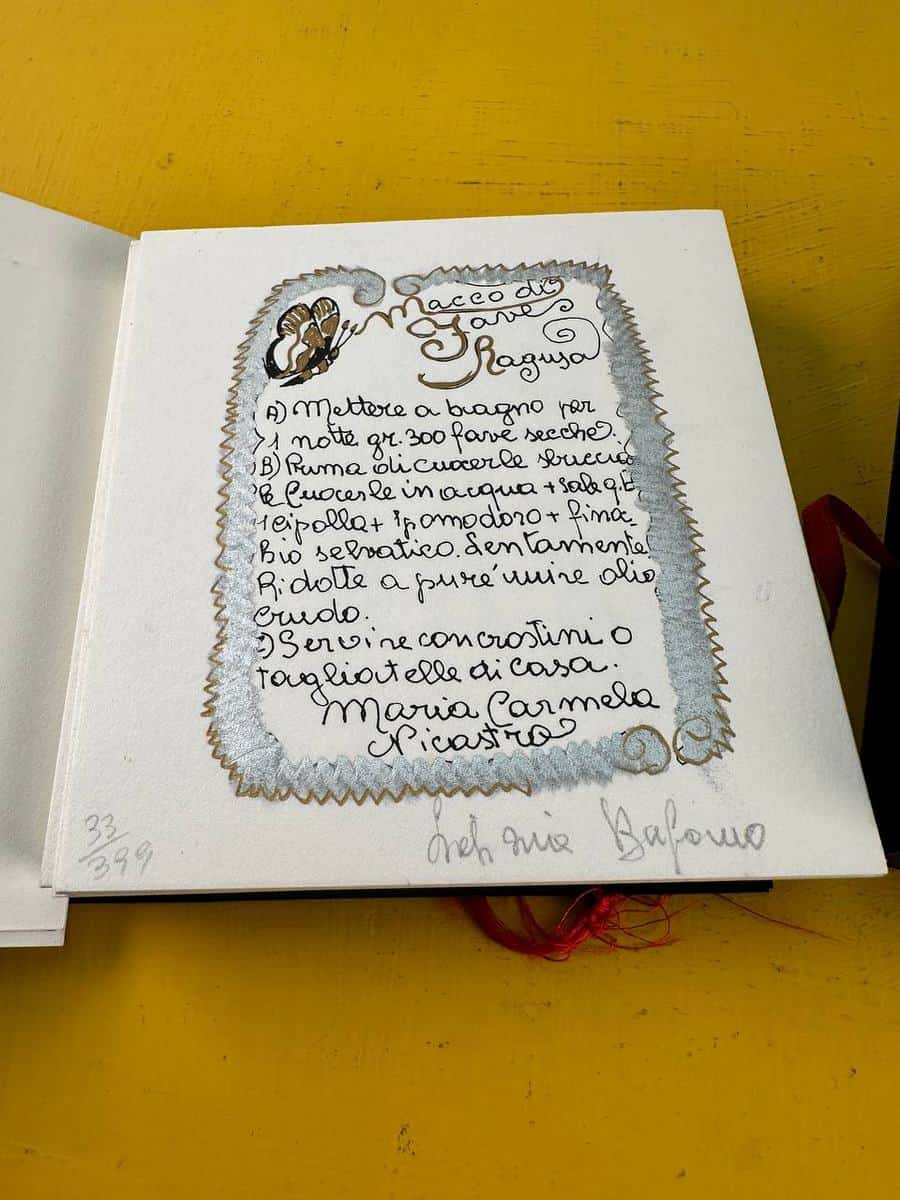 Macco di
Fave
Ragusa
A) Mettere a bagno per
1 notte gr. 300 fave secche.
B) Prima di cuocerle sbuccia
re Cuocerle in acqua + sale q.b
1 cipolla + 1 pomodoro + finoc
chio selvatico. Lentamente
Ridotte a puré unire olio
crudo.
C) Servire con crostini o
tagliatelle di casa.
Maria Carmela
Nicastro
33/399